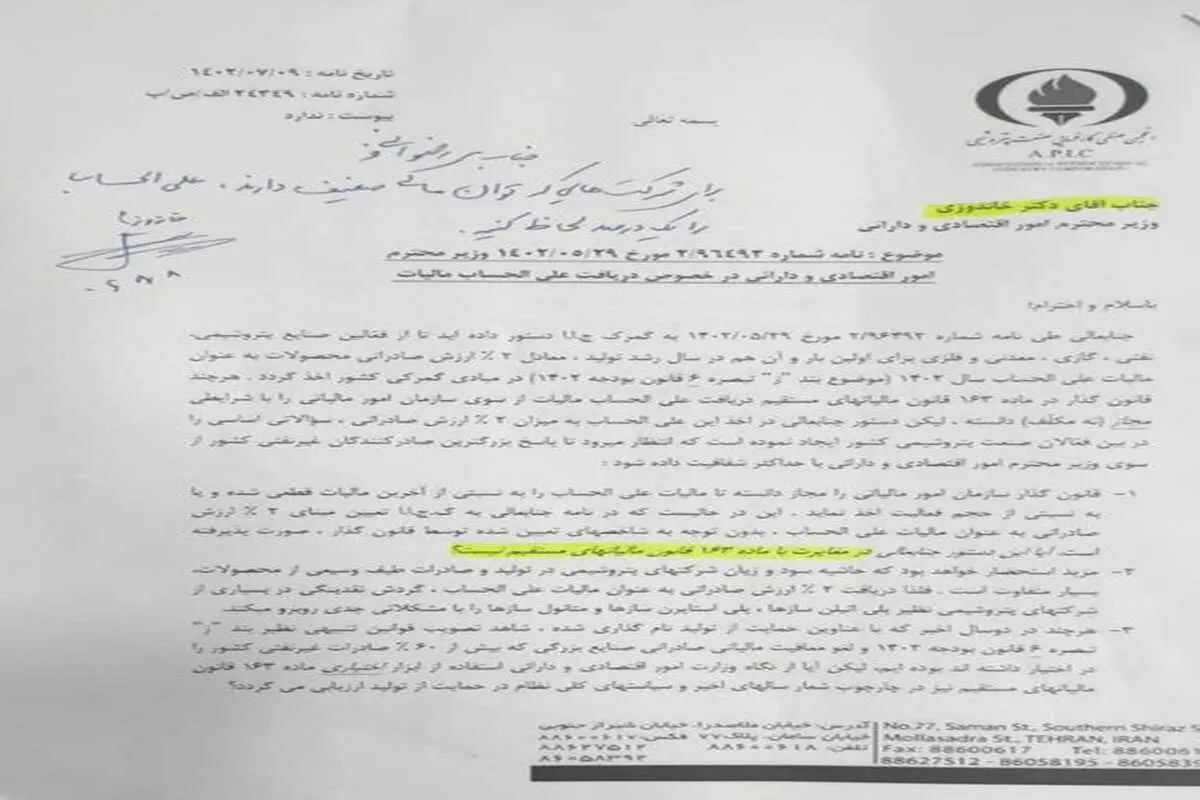 تاریخ نامه : ۱٤۰۲/۰۷/۰۹
شماره نامه : ۲٤۳٤۹ الف/ص/پ
پیوست : ندارد
بسمه تعالی
انجمن صنفی کارفرمایی صنعت پتروشیمی
A.P.I.C
جناب آقای
برای شرکت‌هایی که توان مالی ضعیف دارند، علی الحساب
را یک درصد لحاظ کنید.
جناب آقای دکتر خاندوزی
وزیر محترم امور اقتصادی و دارائی
موضوع : نامه شماره ۲/۹٦٤۹۳ مورخ ۱٤۰۲/۰۵/۲۹ وزیر محترم
امور اقتصادی و دارائی در خصوص دریافت علی الحساب مالیات
باسلام و احترام؛
جنابعالی طی نامه شماره ۲/۹٦٤۹۳ مورخ ۱٤۰۲/۰۵/۲۹ به گمرک ج.ا.ا دستور داده اید تا از فعالین صنایع پتروشیمی،
نفتی ، گازی ، معدنی و فلزی برای اولین بار و آن هم در سال رشد تولید ، معادل ۲ ٪ ارزش صادراتی محصولات به عنوان
مالیات علی الحساب سال ۱٤۰۲ (موضوع بند "ز" تبصره ٦ قانون بودجه ۱٤۰۲) در مبادی گمرکی کشور اخذ گردد . هرچند
قانون گذار در ماده ۱٦۳ قانون مالیاتهای مستقیم دریافت علی الحساب مالیات از سوی سازمان امور مالیاتی را با شرایطی
مجاز (نه مکلف) دانسته ، لیکن دستور جنابعالی در اخذ این علی الحساب به میزان ۲ ٪ ارزش صادراتی ، سؤالاتی اساسی را
در بین فعالان صنعت پتروشیمی کشور ایجاد نموده است که انتظار میرود تا پاسخ بزرگترین صادرکنندگان غیرنفتی کشور از
سوی وزیر محترم امور اقتصادی و دارائی با حداکثر شفافیت داده شود :
۱- قانون گذار سازمان امور مالیاتی را مجاز دانسته تا مالیات علی الحساب را به نسبتی از آخرین مالیات قطعی شده و یا
به نسبتی از حجم فعالیت اخذ نماید . این در حالیست که در نامه جنابعالی به گ.ج.ا.ا تعیین مبنای ۲ ٪ ارزش
صادراتی به عنوان مالیات علی الحساب ، بدون توجه به شاخصهای تعیین شده توسط قانون گذار ، صورت پذیرفته
است. آیا این دستور جنابعالی در مغایرت با ماده ۱٦۳ قانون مالیاتهای مستقیم نیست؟
۲- مزید استحضار خواهد بود که حاشیه سود و زیان شرکتهای پتروشیمی در تولید و صادرات طیف وسیعی از محصولات،
بسیار متفاوت است . فلذا دریافت ۲ ٪ ارزش صادراتی به عنوان مالیات علی الحساب ، گردش نقدینگی در بسیاری از
شرکتهای پتروشیمی نظیر پلی اتیلن سازها ، پلی استایرن سازها و متانول سازها را با مشکلاتی جدی روبرو میکند.
۳- هرچند در دوسال اخیر که با عناوین حمایت از تولید نام گذاری شده ، شاهد تصویب قوانین تنبیهی نظیر بند "ز"
تبصره ٦ قانون بودجه ۱٤۰۲ و لغو معافیت مالیاتی صادراتی صنایع بزرگی که بیش از ٦۰ ٪ صادرات غیرنفتی کشور را
در اختیار داشته اند بوده ایم، لیکن آیا از نگاه وزارت امور اقتصادی و دارائی استفاده از ابزار اختیاری ماده ۱٦۳ قانون
مالیاتهای مستقیم نیز در چارچوب شعار سالهای اخیر و سیاستهای کلی نظام در حمایت از تولید ارزیابی می گردد؟
آدرس: خیابان ملاصدرا، خیابان شیراز جنوبی
خیابان سامان، پلاک۷۷ فکس: ۸۸٦۰۰٦۱۷
تلفن: ۸۸٦۰۰٦۱۸ ۸۸٦۲۷۵۱۲
۸٦۰۵۸۳۹۲
No.77, Saman St., Southern Shiraz
Mollasadra St., TEHRAN, IRAN
Fax: 88600617 Tel: 8860061
88627512 - 86058195 - 8605839